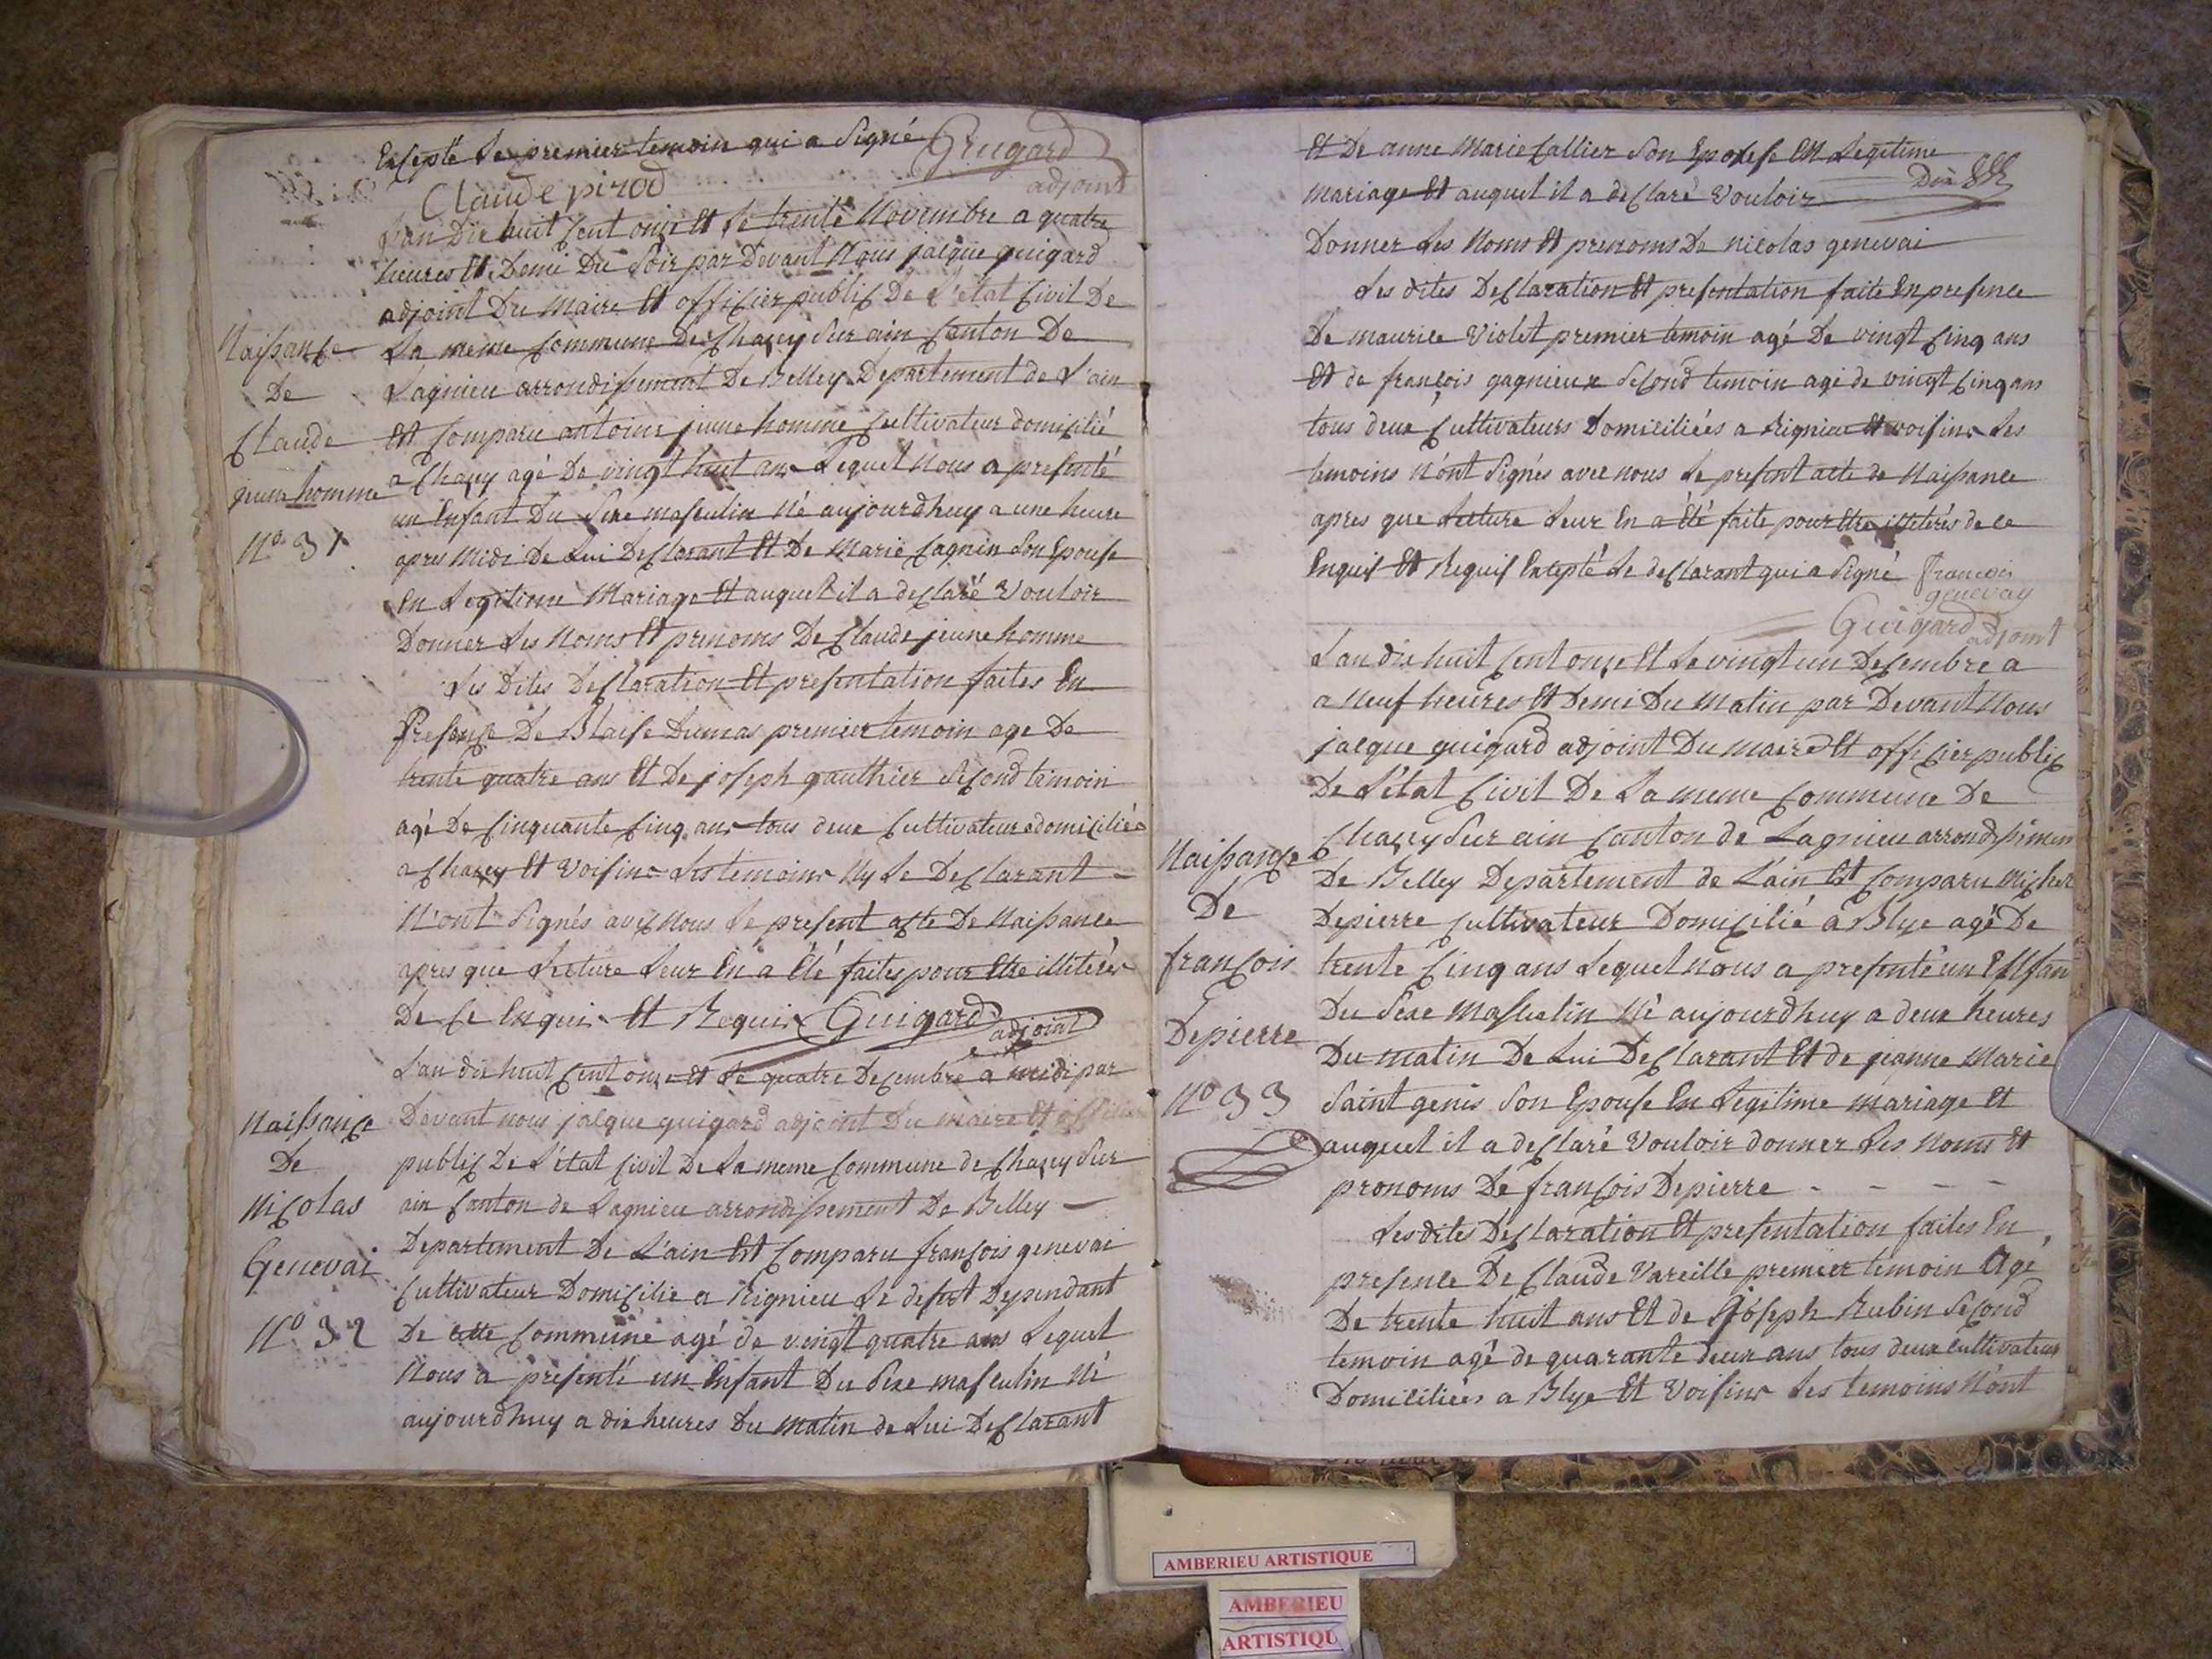 Excepté Le premier temoin qui a Signé Guigard
Claude pirod adjoint
L'an Dix huit Cent onze Et Le trente Novembre a quatre
heures Et Demi Du Soir par Devant Nous jacque guigard
adjoint Du Maire Et officier public De L'etat Civil De
La meme Commune De Chazey Sur ain Canton De
Lagnieu arrondissement De Belley Departement de L'ain
Est Comparu antoine jeune homme Cultivateur domicilié
a Chazey agé De vingt huit ans Lequel Nous a presenté
un Enfant Du Sexe masculin Né aujourdhuy a une heure
apres Midi De Lui Declarant Et De Marie Cagnin Son Epouse
En Legitime Mariage Et auquel il a declaré Vouloir
Donner Les Noms Et prenoms De Claude jeune homme
Naissance
De
Claude
jeune homme
N° 31
Les Dites Declaration Et presentation faites En
Presence De Blaise Dumas premier temoin age De
trente quatre ans Et De joseph gauthier Second temoin
agé De Cinquante Cinq ans tous deux Cultivateurs domiciliés
a Chazey Et Voisins Les temoins Ny Le Declarant
N'ont Signés avec Nous Le present acte De Naissance
apres que Lecture Leur En a Eté faites pour Etre illiterés
De Ce Enquis Et Requis Guigard
adjoint
L'an dix huit Cent onze Et Le quatre Decembre a midi par
Devant nous jacque guigard adjoint Du maire Et officier
public De L'etat Civil De La meme Commune de Chazey Sur
ain Canton de Lagnieu arrondissement De Belley
Departement De L'ain Est Comparu francois genevai
Cultivateur Domicilie a Rignieu Le desert Dependant
De cette Commune agé de vingt quatre ans Lequel
Nous a presenté un Enfant Du Sexe masculin Né
aujourdhuy a dix heures Du matin de Lui Declarant
Naissance
De
Nicolas
Genevai
N° 32
Et De anne Marie Callier Son Epouse En Legitime
mariage Et auquel il a declaré Vouloir
Donner Les Noms Et prenoms De nicolas genevai
Les dites Declaration Et presentation faite En presence
De maurice Violet premier temoin agé De vingt Cinq ans
Et de françois gagnieux Second temoin agé de vingt Cinq ans
tous deux Cultivateurs Domiciliées a Rignieu Et voisins Les
temoins N'ont Signés avec nous Le present acte de Naissance
apres que Lecture Leur En a Eté faite pour Etre illiterés de ce
Enquis Et Requis Excepté Le declarant qui a Signé francois
genevay
Guigard adjoint
L'an dix huit Cent onze Et Le vingt un Decembre a
a Neuf heures Et Demi Du Matin par Devant Nous
jacque guigard adjoint Du maire Et officier public
De L'état Civil De La meme Commune De
Chazey Sur ain Canton de Lagnieu arrondissemen
De Belley Departement de L'ain Est Comparu Michel
Depierre Cultivateur Domicilié a Blye agé De
trente Cinq ans Lequel nous a presenté un Enfan
Du Sexe Masculin Né aujourdhuy a deux heures
Du matin De Lui Declarant Et de jeanne Marie
Saint genis Son Epouse En Legitime mariage Et
auquel il a declaré Vouloir donner Les Noms Et
pronoms De francois Depierre - - - -
Naissance
De
francois
Depierre
N° 33
Les dites Declaration Et presentation faites En
presence De Claude Vareille premier temoin Agé
De trente huit ans Et de Joseph Rubin Second
temoin agé de quarante deux ans tous deux cultivateur
Domiciliées a Blye Et Voisins Les temoins N'ont
AMBERIEU ARTISTIQUE
AMBERIEU
ARTISTIQU